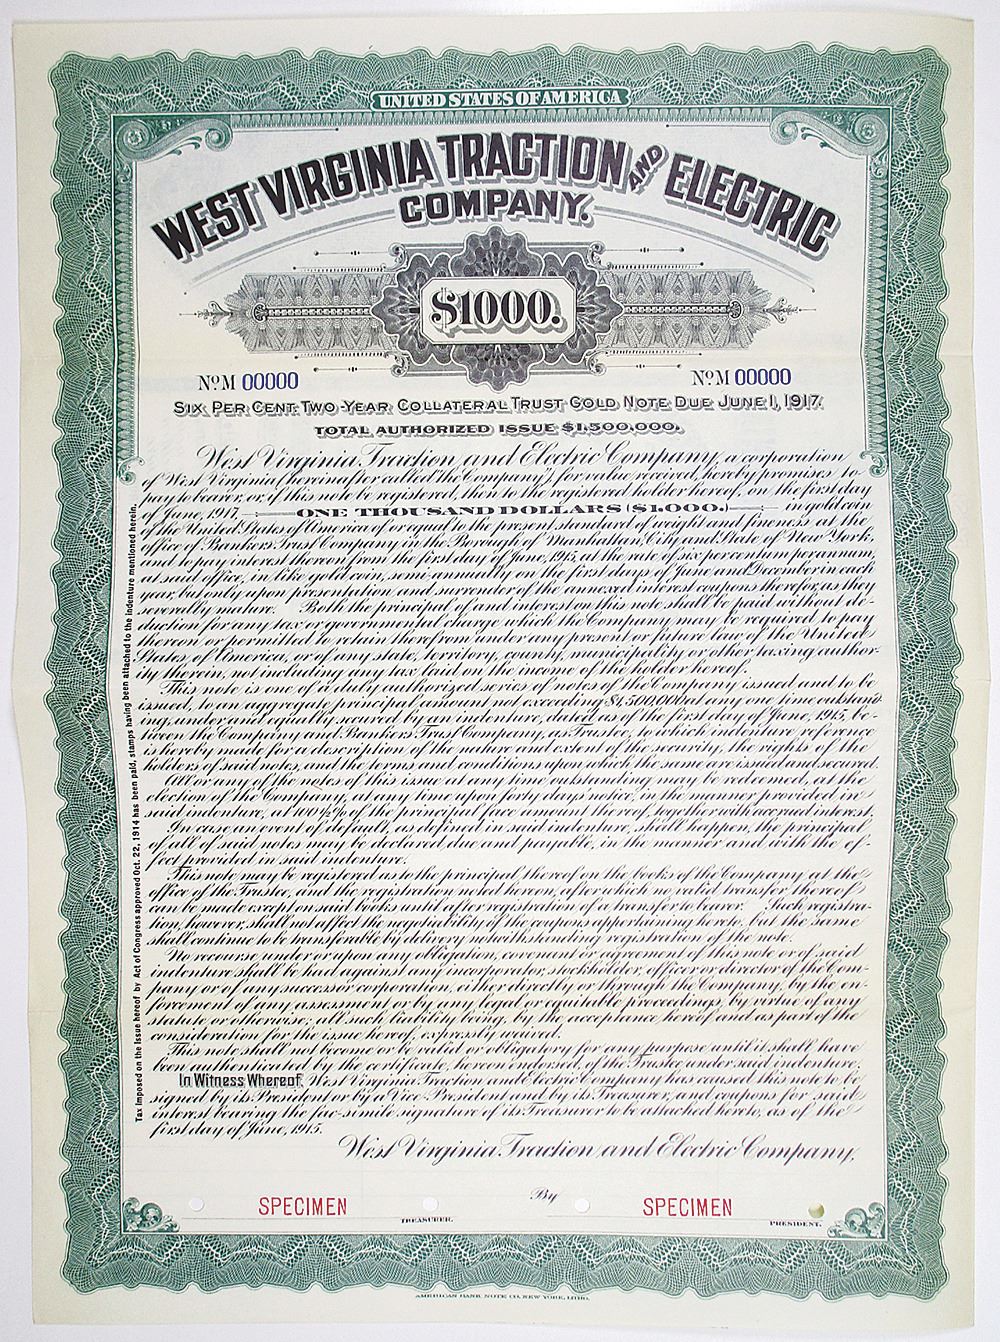 UNITED STATES OF AMERICA
WEST VIRGINIA TRACTION AND ELECTRIC
COMPANY.
$1000.
No M 00000 No M 00000
SIX PER CENT. TWO-YEAR COLLATERAL TRUST GOLD NOTE DUE JUNE 1, 1917.
TOTAL AUTHORIZED ISSUE $1,500,000.
West Virginia Traction and Electric Company, a corporation
of West Virginia (hereinafter called "the Company"), for value received, hereby promises to
pay to bearer, or, if this note be registered, then to the registered holder hereof, on the first day
of June, 1917, ONE THOUSAND DOLLARS ($1,000.) in gold coin
of the United States of America of or equal to the present standard of weight and fineness at the
office of Bankers Trust Company in the Borough of Manhattan, City and State of New York,
and to pay interest thereon from the first day of June, 1915, at the rate of six per centum per annum,
at said office, in like gold coin, semi-annually on the first days of June and December in each
year, but only upon presentation and surrender of the annexed interest coupons therefor, as they
severally mature. Both the principal of and interest on this note shall be paid without de-
duction for any tax or governmental charge which the Company may be required to pay
thereon or permitted to retain therefrom under any present or future law of the United
States of America, or of any state, territory, county, municipality or other taxing author-
ity therein, not including any tax laid on the income of the holder hereof.
This note is one of a duly authorized series of notes of the Company issued and to be
issued, to an aggregate principal amount not exceeding $1,500,000 at any one time outstand-
ing, under and equally secured by an indenture, dated as of the first day of June, 1915, be-
tween the Company and Bankers Trust Company, as Trustee, to which indenture reference
is hereby made for a description of the nature and extent of the security, the rights of the
holders of said notes, and the terms and conditions upon which the same are issued and secured.
All or any of the notes of this issue at any time outstanding may be redeemed, at the
election of the Company, at any time upon forty days' notice, in the manner provided in
said indenture, at 100½% of the principal face amount thereof, together with accrued interest.
In case an event of default, as defined in said indenture, shall happen, the principal
of all of said notes may be declared due and payable, in the manner and with the ef-
fect provided in said indenture.
This note may be registered as to the principal thereof on the books of the Company at the
office of the Trustee, and the registration noted hereon, after which no valid transfer thereof
can be made except on said books until after registration of a transfer to bearer. Such registra-
tion, however, shall not affect the negotiability of the coupons appertaining hereto, but the same
shall continue to be transferable by delivery notwithstanding registration of the note.
No recourse under or upon any obligation, covenant or agreement of this note or of said
indenture shall be had against any incorporator, stockholder, officer or director of the Com-
pany or of any successor corporation, either directly or through the Company, by the en-
forcement of any assessment or by any legal or equitable proceedings, by virtue of any
statute or otherwise; all such liability being, by the acceptance hereof and as part of the
consideration for the issue hereof, expressly waived.
This note shall not become or be valid or obligatory for any purpose until it shall have
been authenticated by the certificate, hereon endorsed, of the Trustee under said indenture.
In Witness Whereof, West Virginia Traction and Electric Company has caused this note to be
signed by its President or by a Vice-President and by its Treasurer, and coupons for said
interest bearing the fac-simile signature of its Treasurer to be attached hereto, as of the
first day of June, 1915.
West Virginia Traction and Electric Company,
By
SPECIMEN SPECIMEN
TREASURER. PRESIDENT.
AMERICAN BANK NOTE CO. NEW YORK, LITHO.
Tax imposed on the issue hereof by Act of Congress approved Oct. 22, 1914 has been paid, stamps having been attached to the indenture mentioned herein.